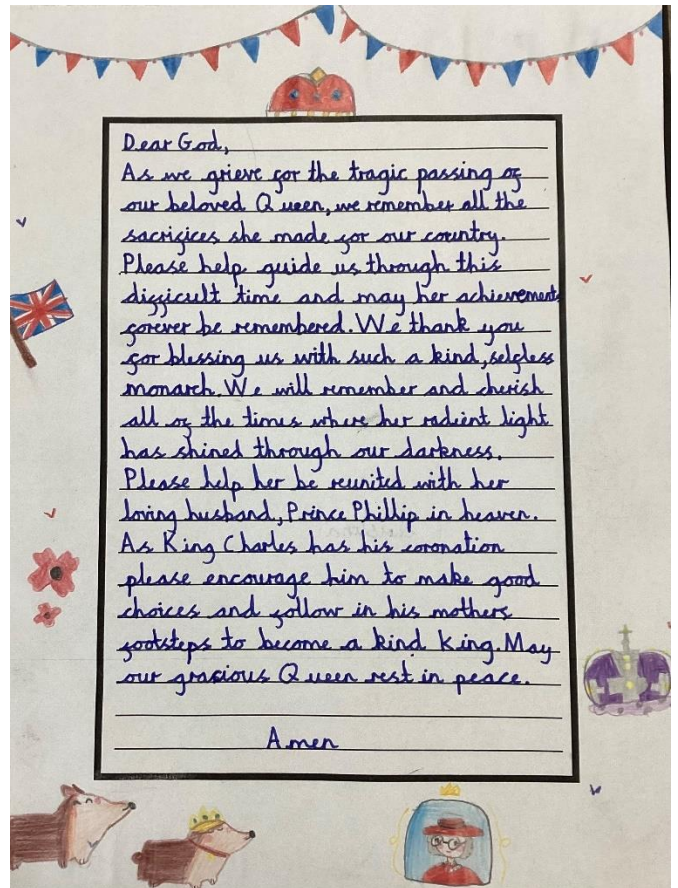 Dear God,
As we grieve for the tragic passing of
our beloved Queen, we remember all the
sacrifices she made for our country.
Please help guide us through this
difficult time and may her achievements
forever be remembered. We thank you
for blessing us with such a kind, selfless
monarch. We will remember and cherish
all of the times where her radient light
has shined through our darkness.
Please help her be reunited with her
loving husband, Prince Phillip in heaven.
As King Charles has his coronation
please encourage him to make good
choices and follow in his mothers
footsteps to become a kind King. May
our gracious Queen rest in peace.
Amen